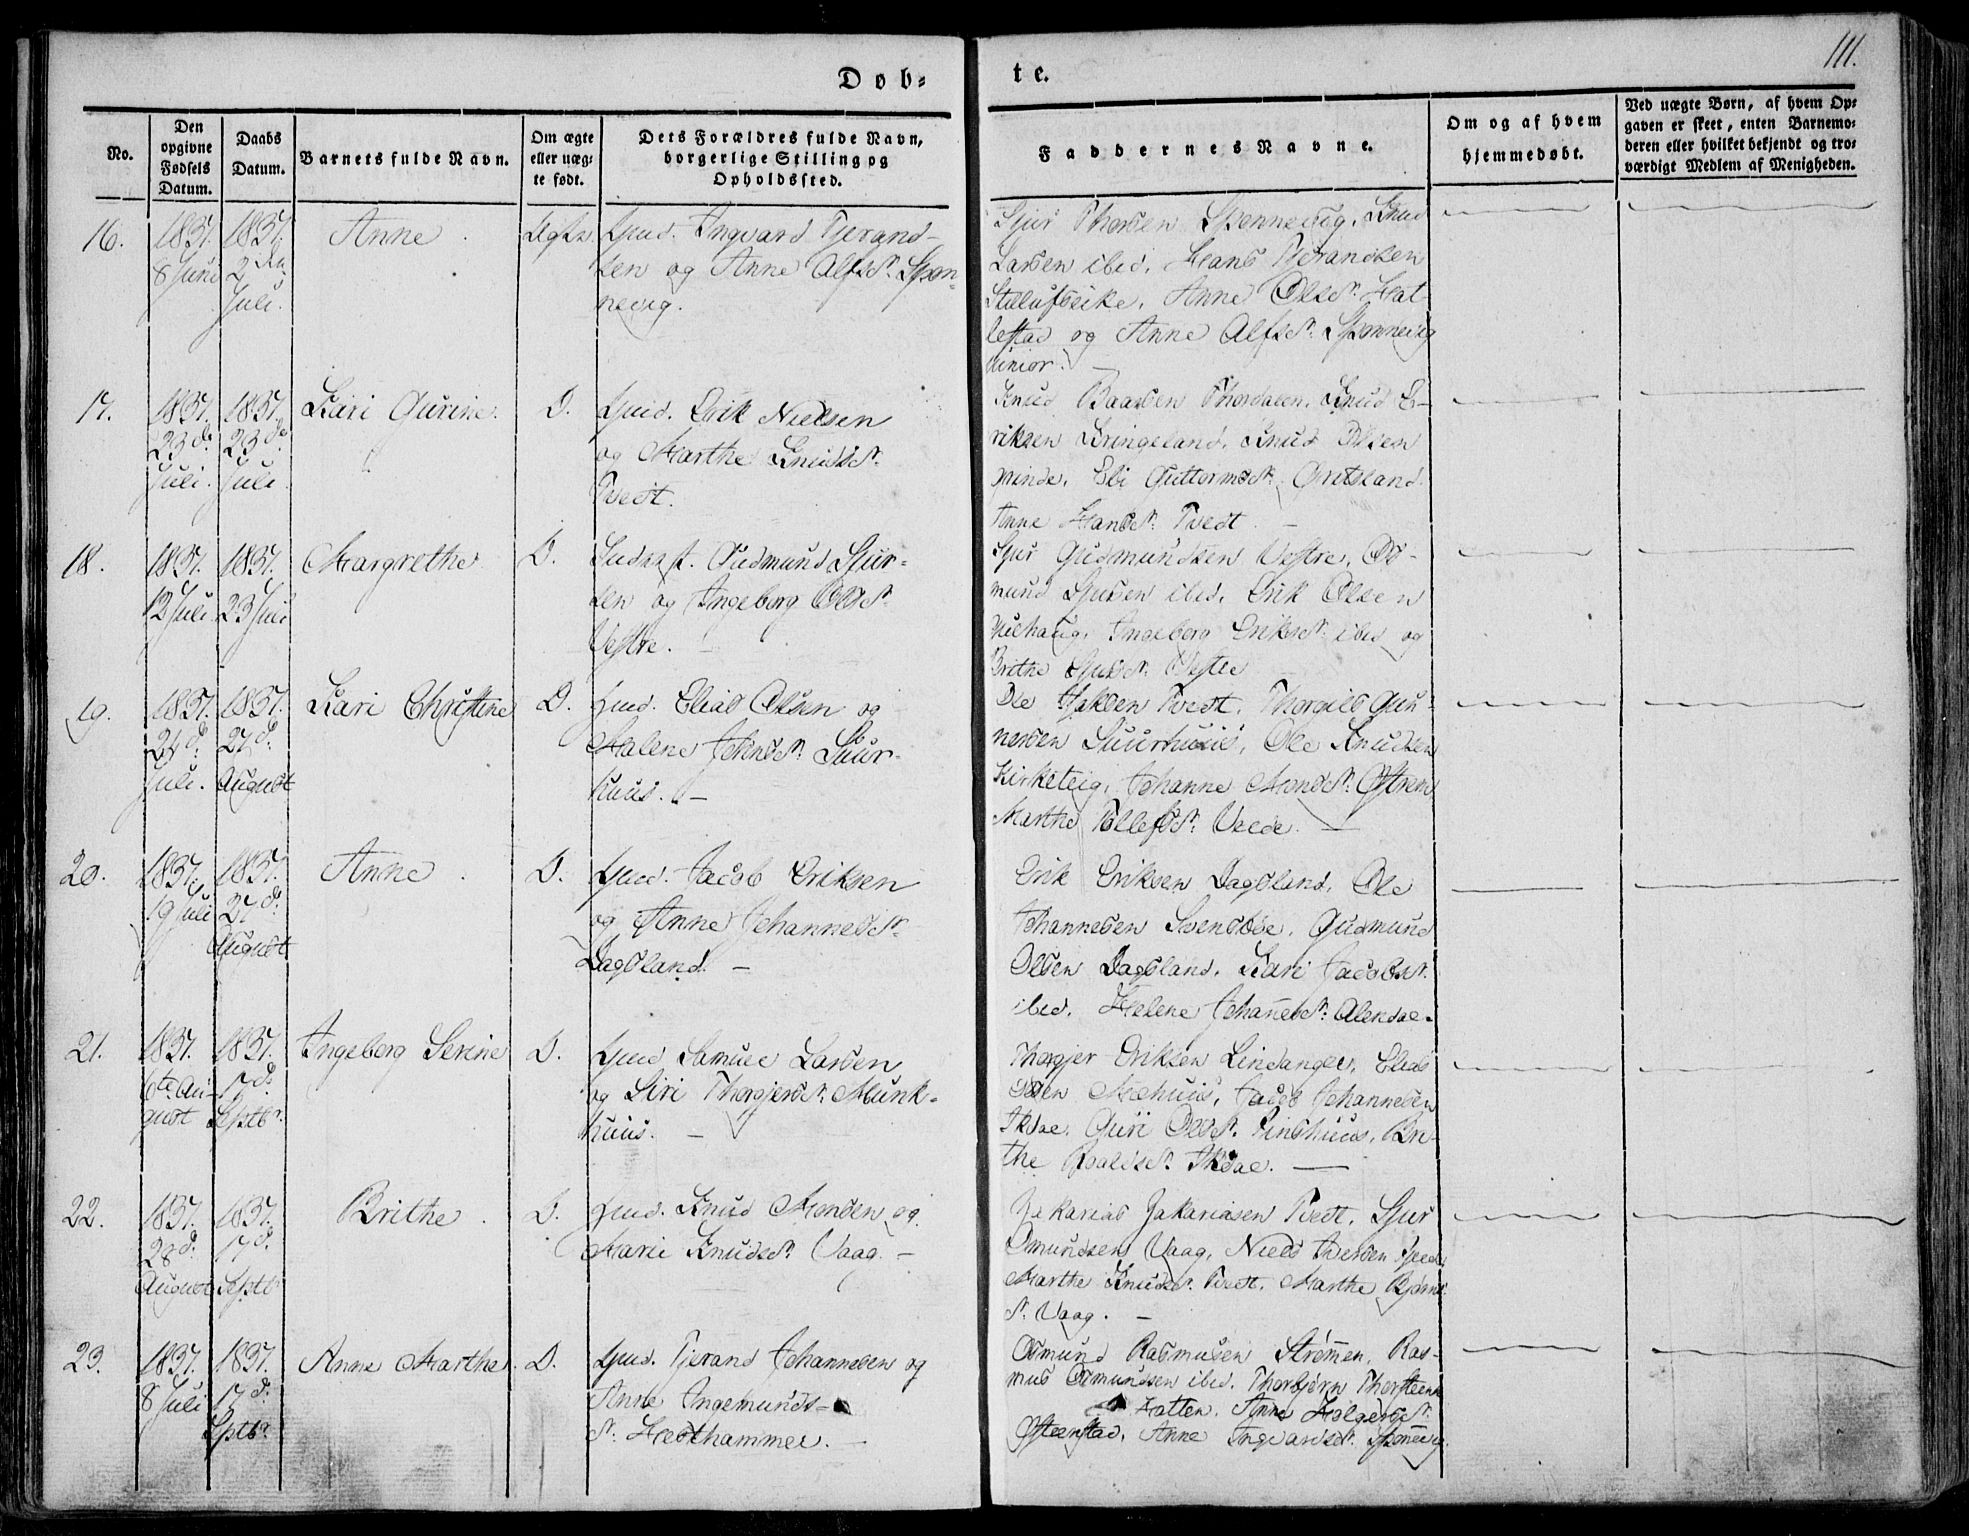 111.
Døb-
te.
No.
Den
opgivne
Fødsels
Datum.
Daabs
Datum.
Barnets fulde Navn.
Om ægte
eller uæg-
te født.
Dets Forældres fulde Navn,
borgerlige Stilling og
Opholdssted.
Faddernes Navne.
Om og af hvem
hjemmedøbt.
Ved uægte Børn, af hvem Op-
gaven er skeet, enten Barnemo-
deren eller hvilket bekjendt og tro-
værdigt Medlem af Menigheden.
16.
1837.
8 Juni
1837.
2
Juli.
Anne
Ægte.
Gmd. Ingvard Tjerand-
sen og Anne Alfsdr. Skjøn-
nevig.
Sjur Thorsen Skjønnevig, Knud
Larsen ibid, Hans Tjerandsen
Anne Olsdr. Hat-
lestad og Anne Alfsdr. Skjønnevig
junior.
17.
1837.
23d.
Juli.
1837.
23d.
Juli.
Kari Gurine.
D.
Gmd. Erik Nielsen
og Marthe Knudsdr.
Tvedt.
Knud Baarsen Thordalen, Knud E-
riksen Kringeland, Knud Olsen
Eli Guttormsdr.
Anne Hansdr. Tvedt.
18.
1837.
12 Juli.
1837.
23 Juli
Margrethe
D.
Gudmund Sjur-
sen og Ingeborg Olsdr.
Vestre.
Sjur Gudmundsen Vestre, Os-
mund Sjursen ibid, Erik Olsen
Ingeborg Eriksdr. ibid og
Brithe Sjursdr. Vestre
19.
1837.
24d.
Juli.
1837.
27d.
August
Kari Christine
D.
Gmd. Elias Olsen og
Malene Johnsdr. Suur-
huus.
Ole Tvedt, Thorgils Gun-
nersen Suurhuus, Ole Knudsen
Kirketeig, Johanne Monsdr. Østrem
Marthe Tollefsdr. Velde.
20.
1837.
19 Juli
1837.
27d.
August
Anne
D.
Gmd. Jacob Eriksen
og Anne Johannesdr.
Dagsland.
Erik Eriksen Dagsland, Ole
Johannesen Svensbøe, Gudmund
Olsen Dagsland, Kari Jacobsdr.
ibid, Helene Johannesdr. Alendae.
21.
1837.
6te Au-
gust
1837.
17d.
Septbr.
Ingeborg Serine
D.
Gmd Samuel Larsen
og Siri Thorgjersdr. Munk-
huus.
Thorgjer Eriksen Lindanger, Elias
Jacob Johannesen
Ikdae, Guri Olsdr. Finshuus, Bri-
the Roaldsdr. Ikdae.
22.
1837.
28d.
August
1837.
17d.
Septb
Brithe
D.
Gmd. Knud Monsen og
Marie Knudsdr. Vaag.
Zakarias Zakariasen Tvedt, Sjur
Omundsen Vaag, Niels Iversen
Marthe Knudsdr. Tvedt, Marthe Bjørns-
dr. Vaag.
23.
1837.
8 Juli
1837.
17d.
Septbr.
Anne Marthe
D.
Gmd. Tjerand Johannesen og
Anne Ingemunds-
dr. Hesthammer.
Osmund Rasmusen Strømmen, Ras-
mus Osmundsen ibid, Thorbjørn Thorsteens
Hatten, Anna Holgersdr.
Østeenstad, Anne Ingvardsdr. Skjønnevig.